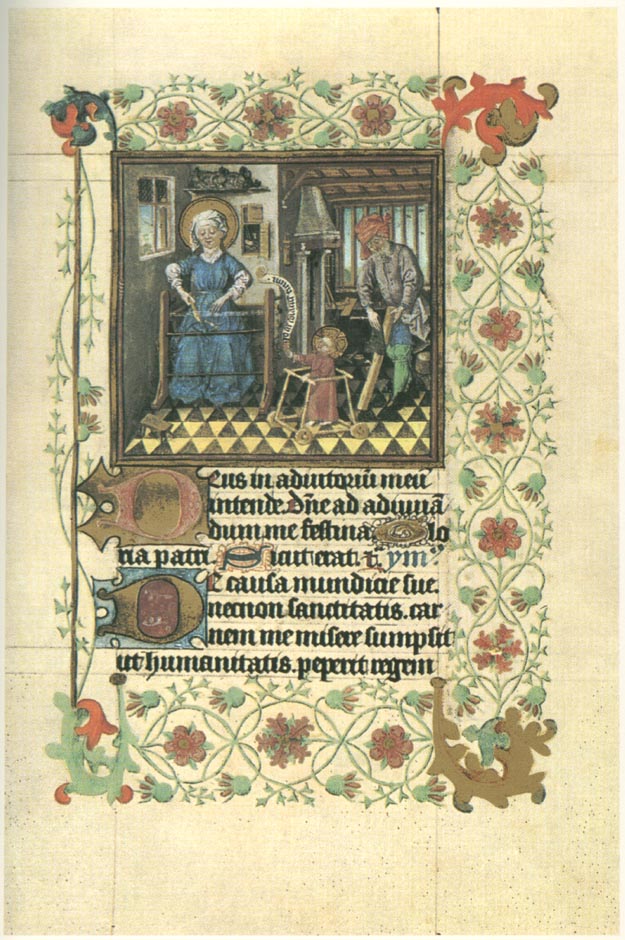 Deus in adiutoriū meū
intende. Dn̄e ad adiuuā
dum me festina Glo
ria patri Sicut erat. ym̄
DE causa mundicie sue.
necnon sanctitatis. car
nem me misere sumpsit
ut humanitatis. peperit regem